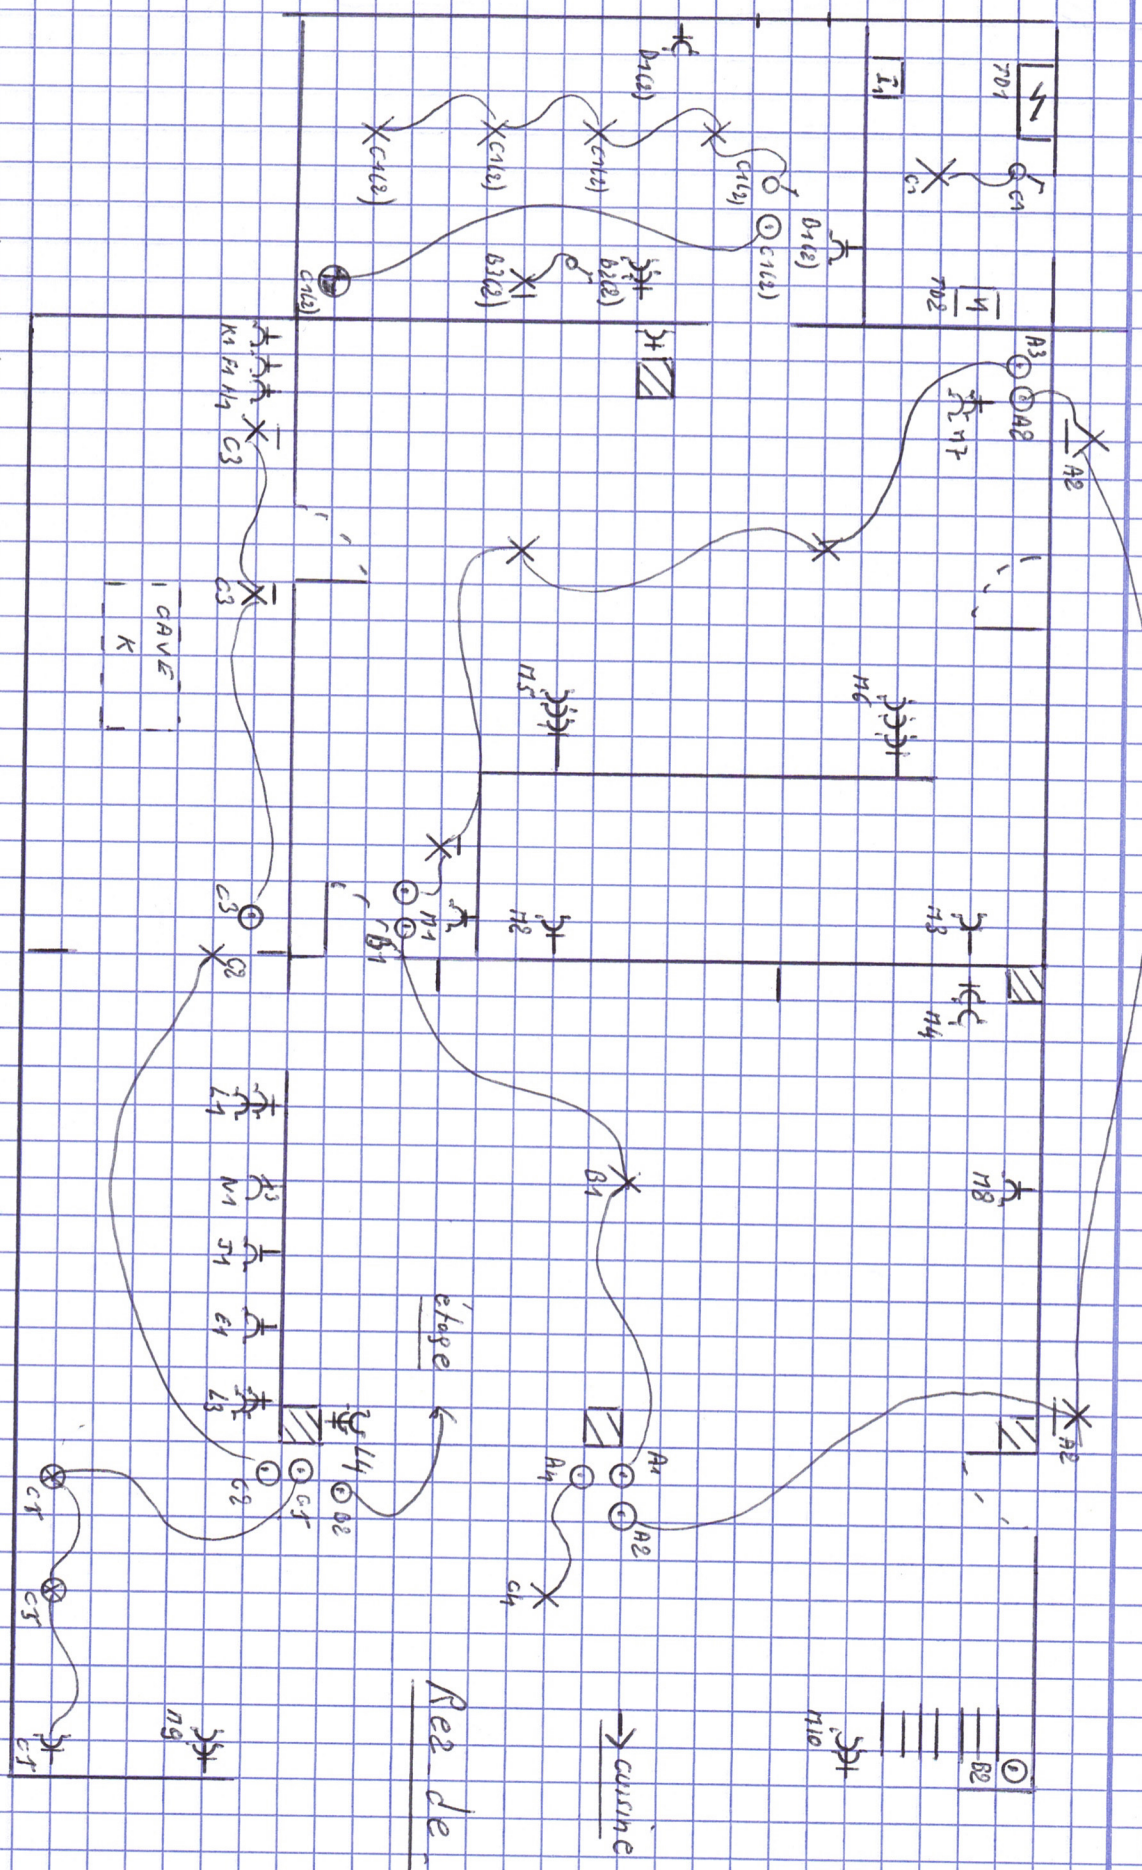 TD1
I1
C1
C1
TD2
D1(2)
C1(2)
C1(2)
C1(2)
C1(2)
C1(2)
B1(2)
B2(2)
B3(2)
C1(2)
A3
A2
M7
A2
K1
F1
H1
C3
C3
CAVE
K
M5
M6
C3
C2
M1
B1
M2
M3
M4
L1
N1
J1
E1
L3
B1
M8
étage
L4
C2
C5
B2
A4
A1
A2
C4
A2
C5
C5
C5
M9
Rez-de-
→ cuisine
M10
B2